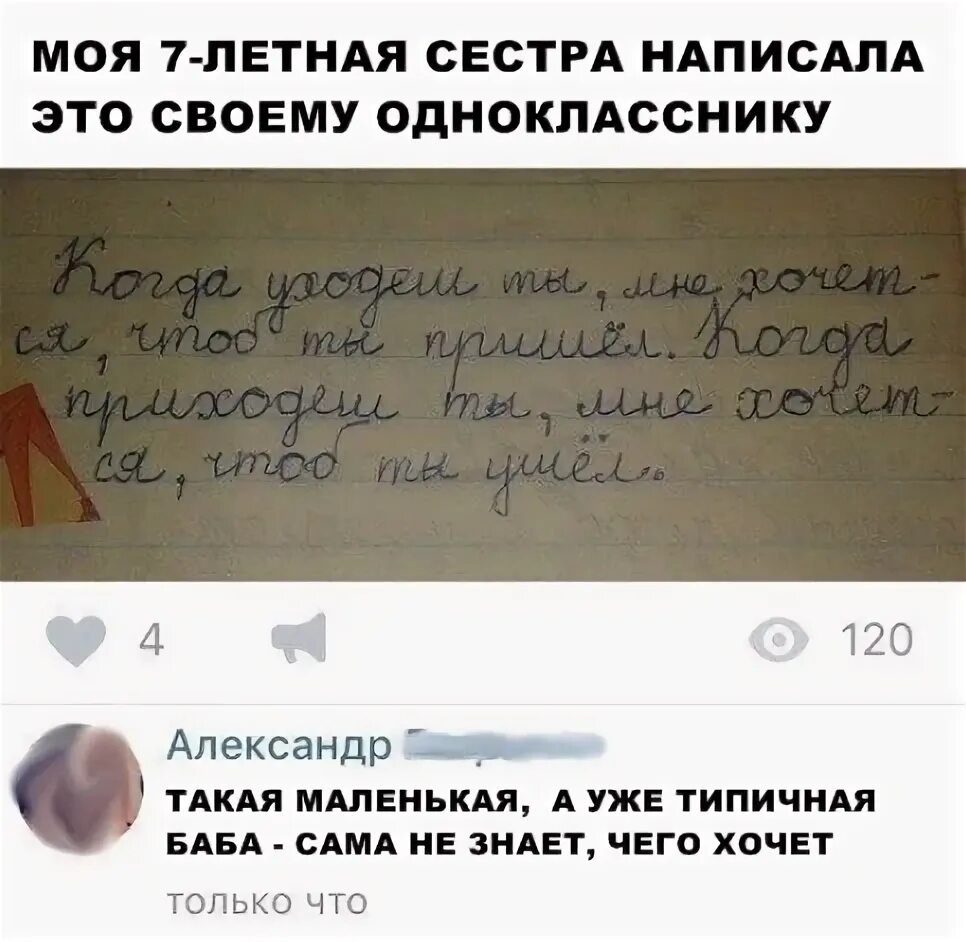 МОЯ 7-ЛЕТНАЯ СЕСТРА НАПИСАЛА
ЭТО СВОЕМУ ОДНОКЛАССНИКУ
Когда уходеш ты, мне хочет-
ся, чтоб ты пришёл. Когда
приходеш ты, мне хочет-
ся, чтоб ты ушёл..
4
120
Александр
ТАКАЯ МАЛЕНЬКАЯ, А УЖЕ ТИПИЧНАЯ
БАБА - САМА НЕ ЗНАЕТ, ЧЕГО ХОЧЕТ
только что